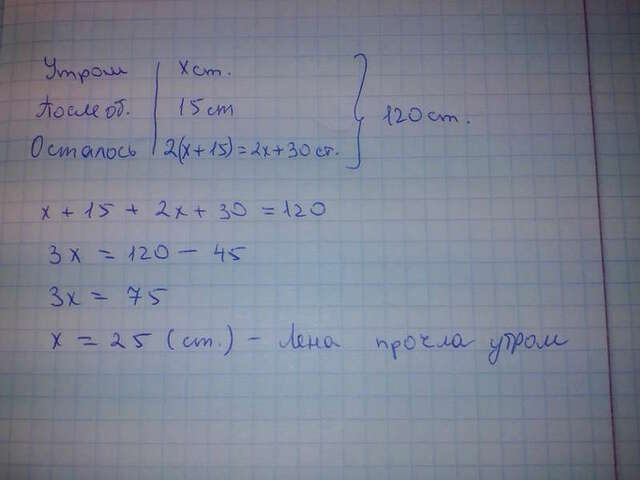 Утром хст.
После об. 15 ст
Осталось 2(х+15)=2х+30 ст.
120 ст.
х + 15 + 2х + 30 = 120
3х = 120 - 45
3х = 75
х = 25 (ст.) - Лена прочла утром